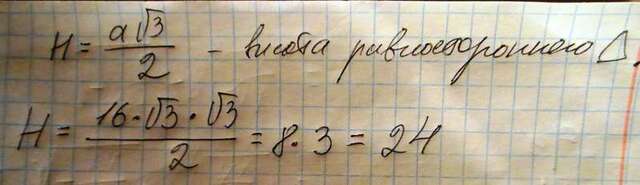 H = a√3/2 - высота равностороннего △.
H = 16·√3·√3/2 = 8·3 = 24